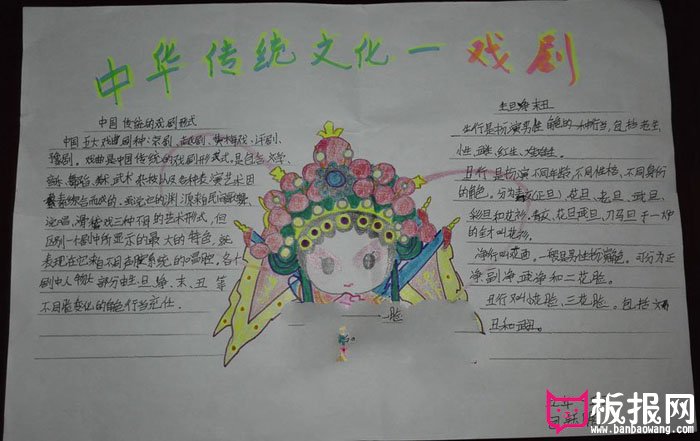 中华传统文化一戏剧
中国传统的戏剧形式
中国五大戏曲剧种:京剧、越剧、黄梅戏、评剧、
豫剧。戏曲是中国传统的戏剧形式,是包含文学、
音乐、舞蹈、美术、武术、杂技以及各种表演艺术因
说唱、滑稽戏三种不同的艺术形式,但
区别一个剧种所显示的最大的特色,
表现在它来自不同声腔系统的唱腔。各个
剧中人物大部分由生、旦、净、末、丑等
不同脸变化的角色行当充任。
生旦净末丑
生行是扮演男性角色的一种行当,包括老生、
小生、武生、红生、娃娃生。
旦行是扮演不同年龄、不同性格、不同身份
的角色。分为青衣(正旦)、花旦、老旦、武旦、
彩旦和花衫。青衣、花旦、武旦、刀马旦于一炉
的全才叫花衫。
净行叫花面。一般是男性扮演角色。可分为正
净、副净、武净和二花脸。
丑行叫小花脸、三花脸。包括文
丑和武丑。
脸
板报网
www.banbaowang.com